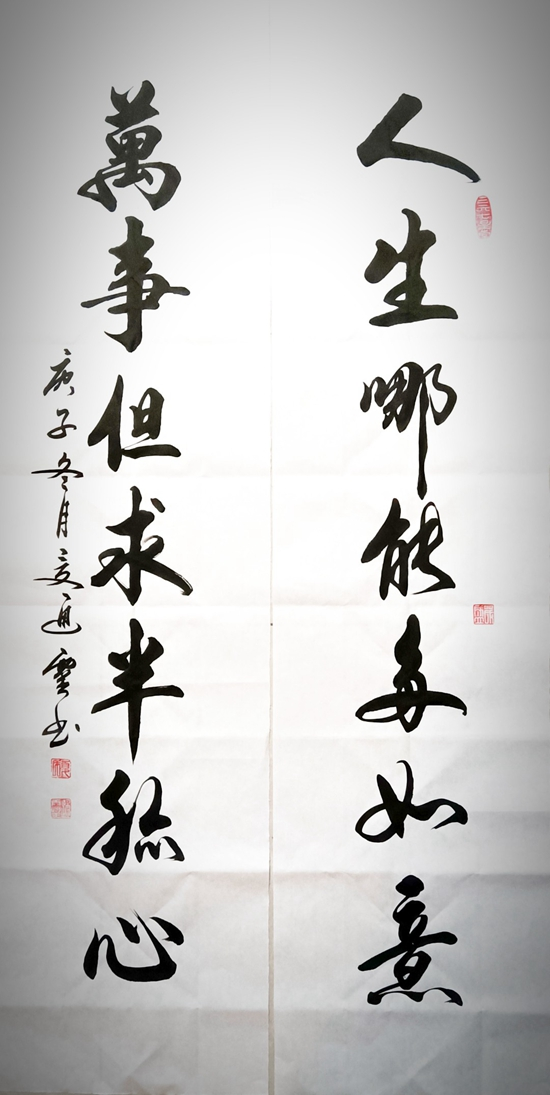 人生哪能多如意
萬事但求半称心
庚子冬月通书